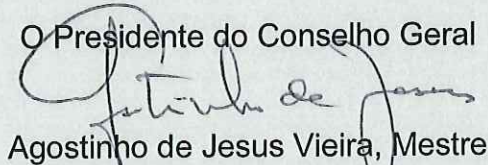 O Presidente do Conselho Geral
Agostinho de Jesus
Agostinho de Jesus Vieira, Mestre